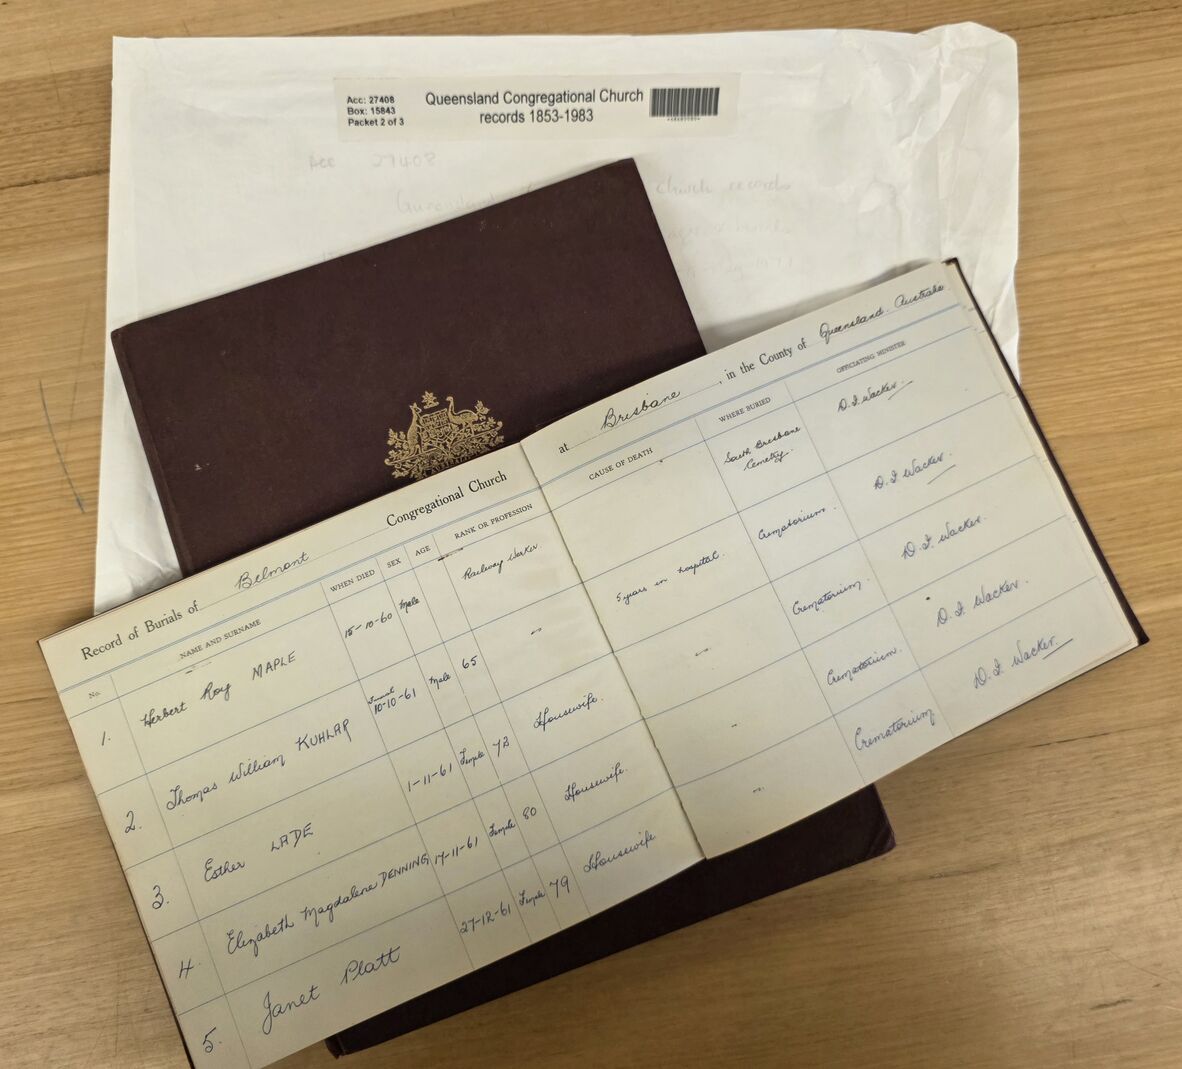 Acc: 27408
Box: 15843
Packet 2 of 3
Queensland Congregational Church
records 1853-1983
Acc 27408
church records
Record of Burials of Belmont Congregational Church at Brisbane, in the County of Queensland. Australia
No. NAME AND SURNAME WHEN DIED SEX AGE RANK OR PROFESSION CAUSE OF DEATH WHERE BURIED OFFICIATING MINISTER
1. Herbert Roy MAPLE 15-10-60 Male Railway Worker. South Brisbane Cemetry. D. I. Wacker.
2. Thomas William KUHLAR 10-10-61 Male 65 5 years in hospital. Crematorium. D. I. Wacker.
3. Esther LADE 1-11-61 Female 73 Housewife. Crematorium. D. I. Wacker.
4. Elizabeth Magdalene DENNING 17-11-61 Female 80 Housewife. Crematorium. D. I. Wacker.
5. Janet Platt 27-12-61 Female 79 Housewife. Crematorium D. I. Wacker.